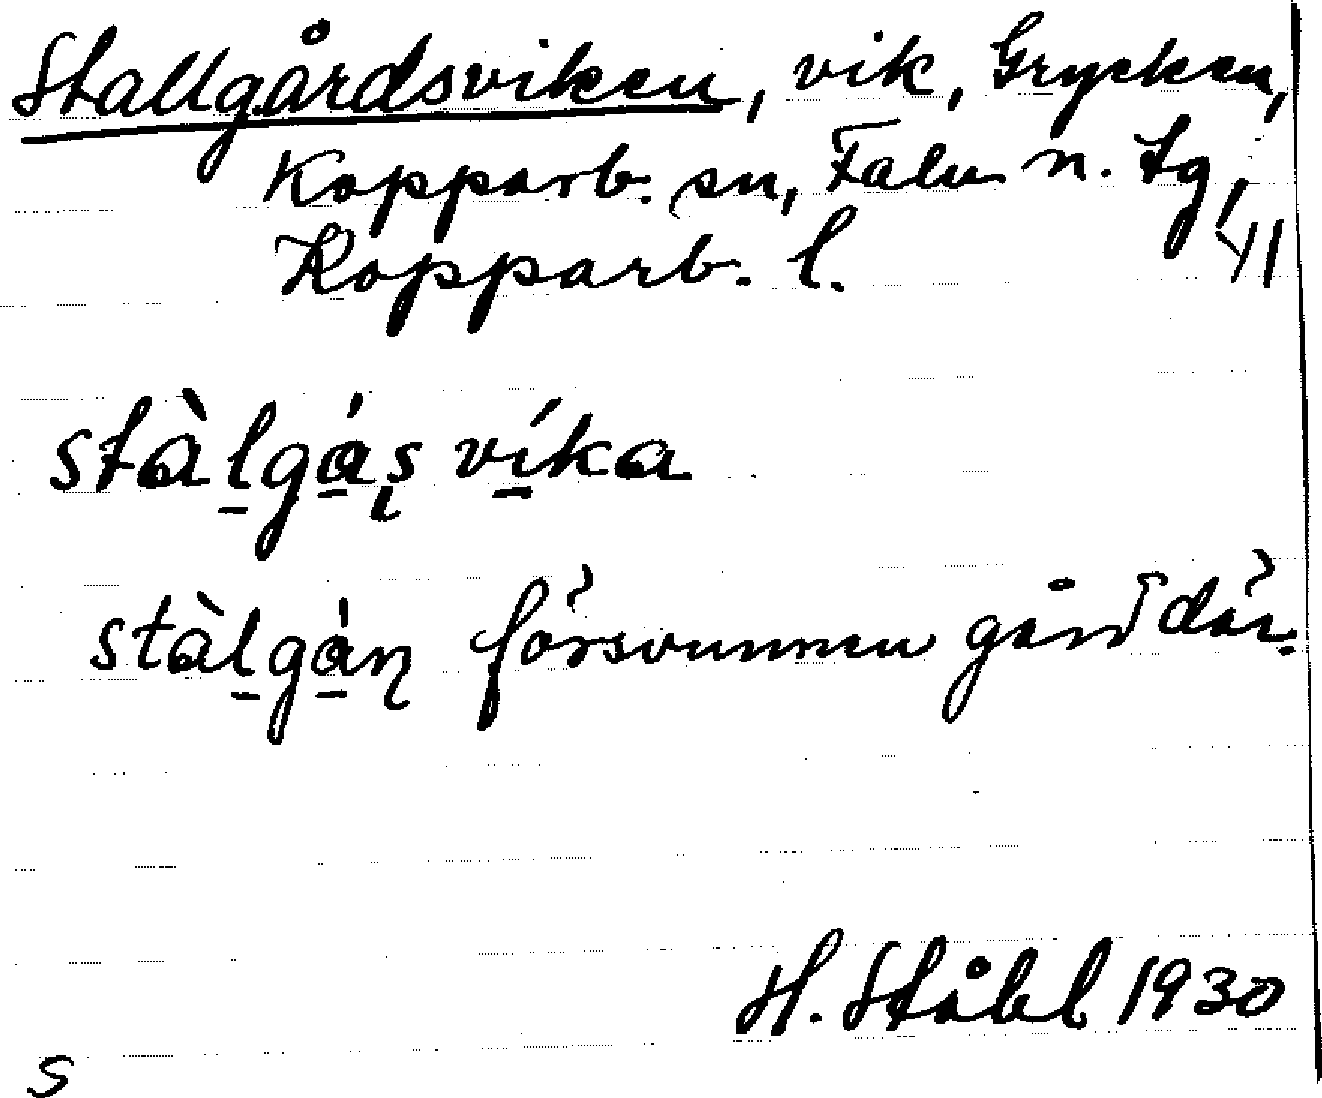 Stallgårdsviken, vik, Grycken,
Kopparb. sn, Falu n. tg,
Kopparb. l. 41
stàl̠gá̠s̨ ví̠ka
stàl̠gá̠ɳ försvunnen gård där.
H. Ståhl 1930
S